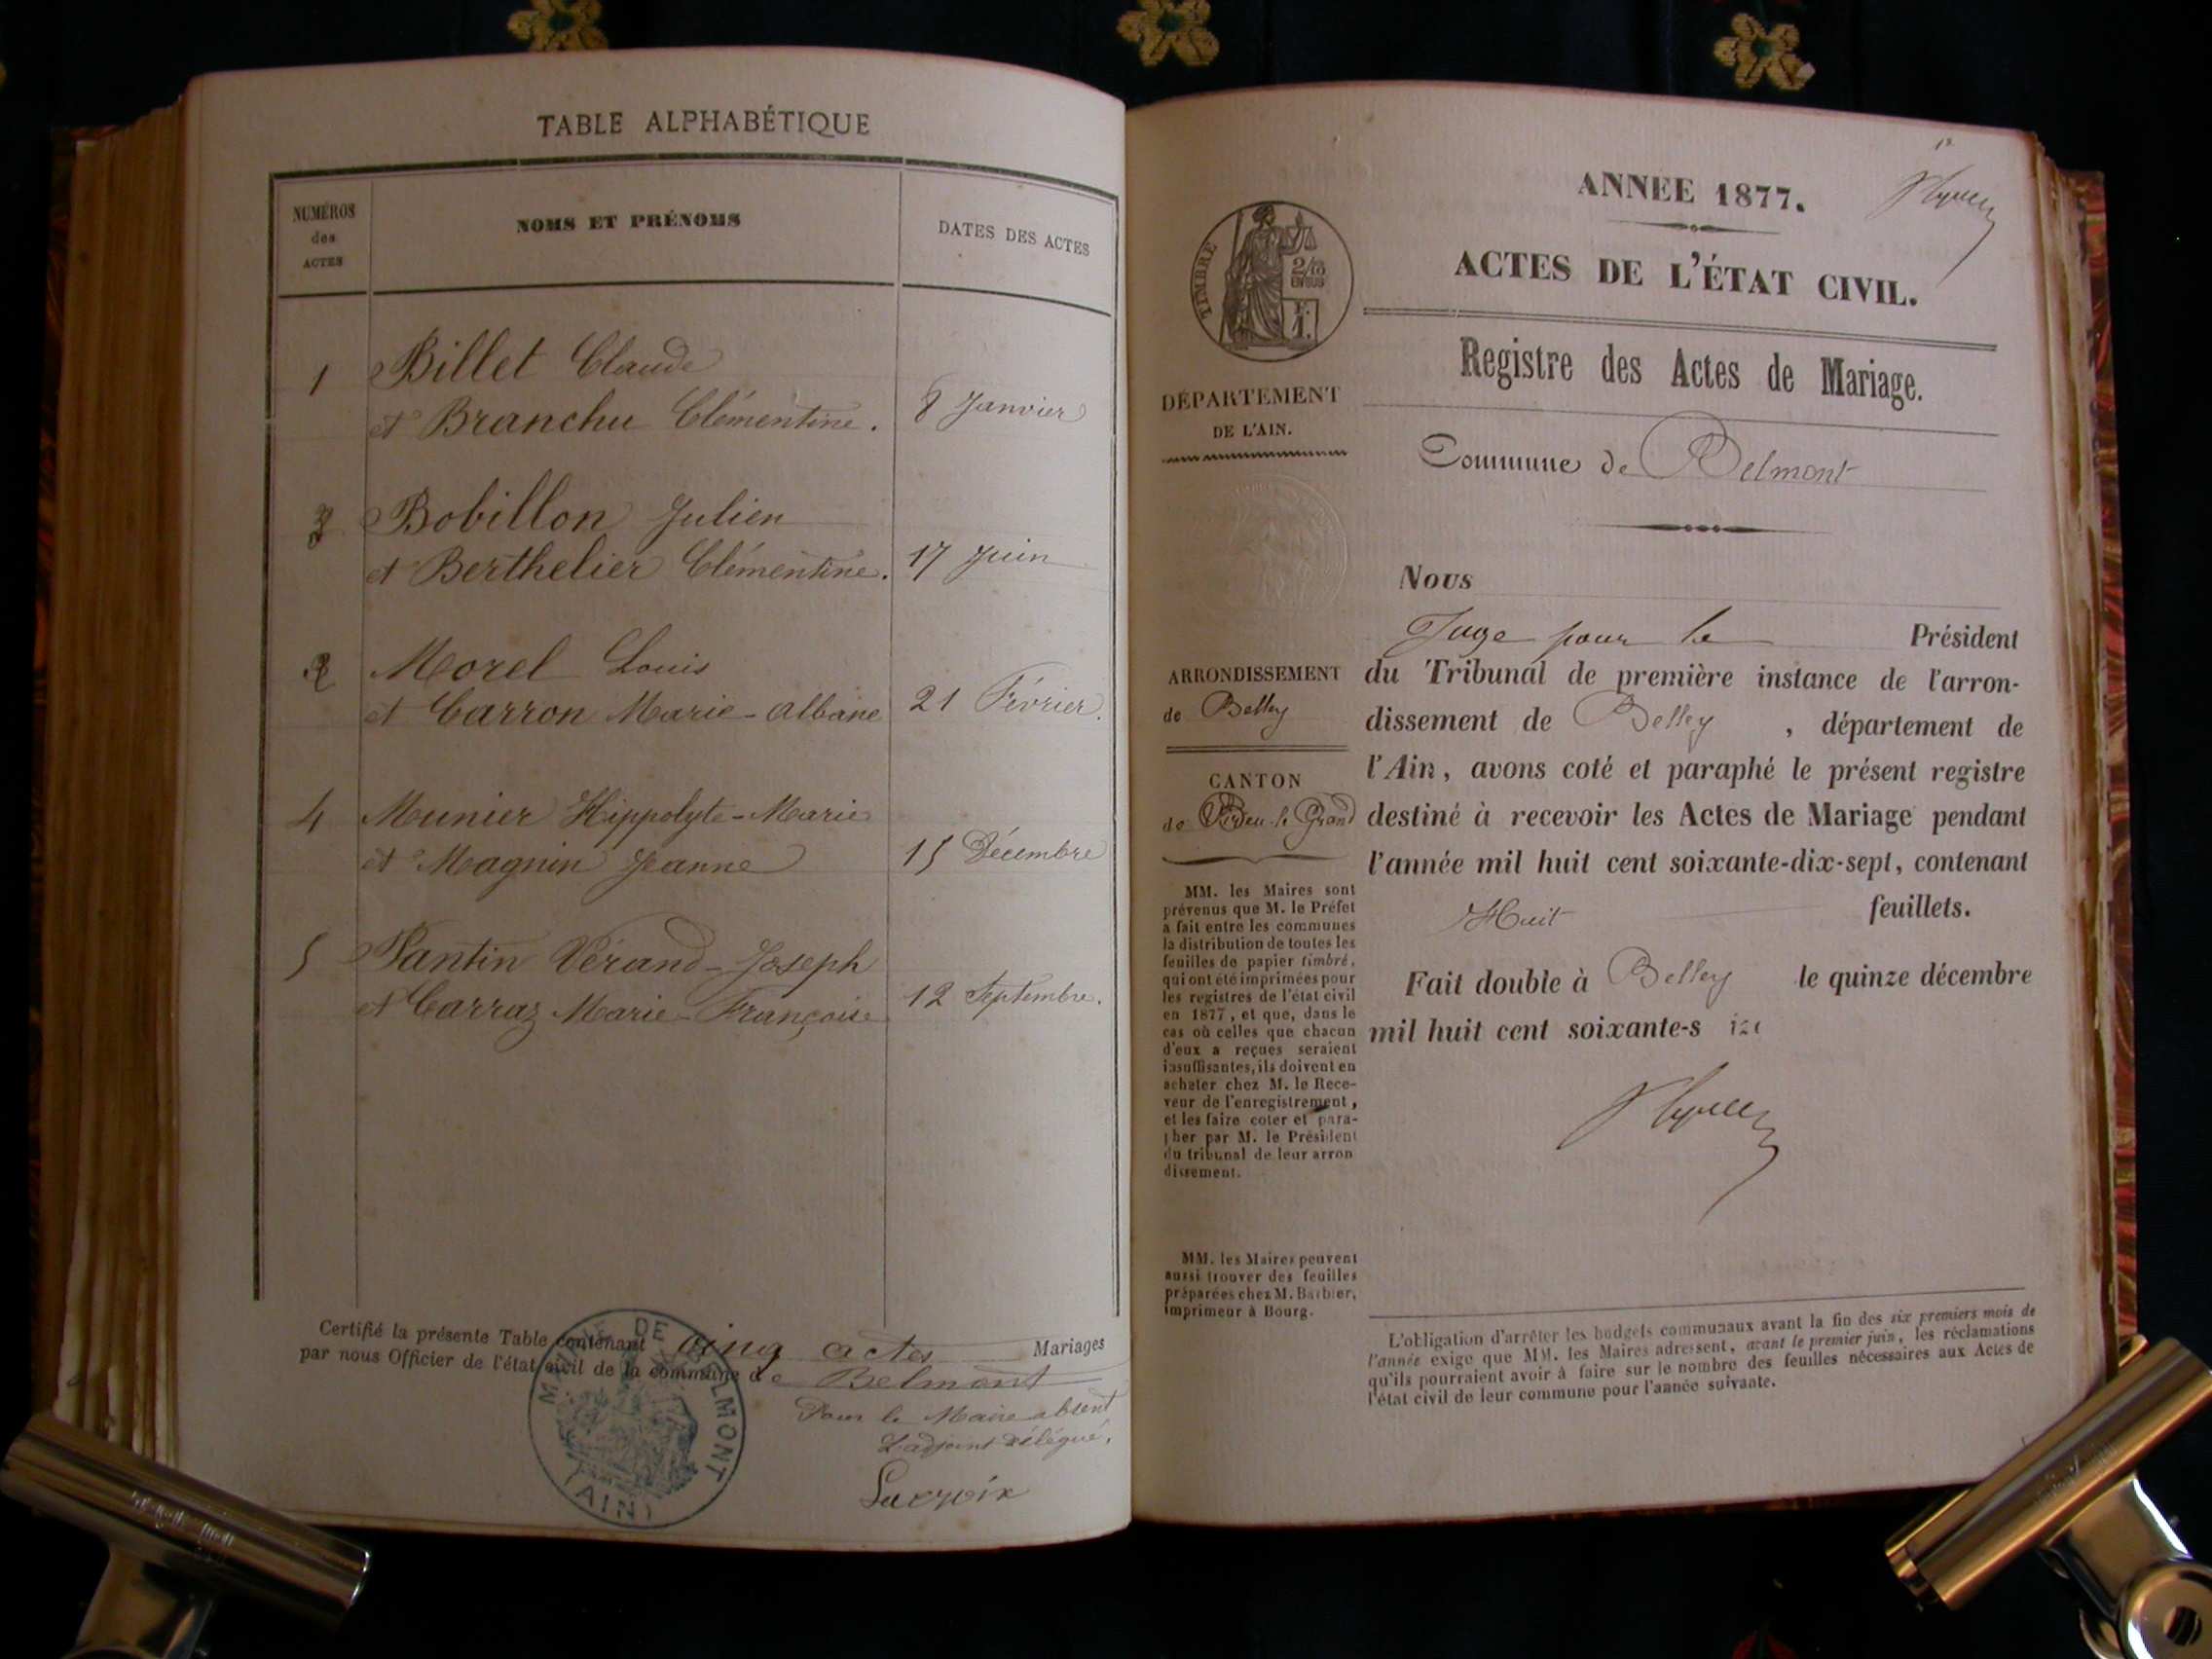 TABLE ALPHABÉTIQUE
NUMÉROS
des
ACTES
NOMS ET PRÉNOMS
DATES DES ACTES
1 Billet Claude
et Branchu Clémentine. 8 Janvier
3 Bobillon Julien
et Berthelier Clémentine. 17 Juin
2 Morel Louis
et Carron Marie-Albane 21 Février.
4 Munier Hippolyte-Marie
et Magnin Jeanne 15 Décembre
5 Pantin Vérand-Joseph
et Carraz Marie-Françoise 12 Septembre.
Certifié la présente Table contenant cinq actes Mariages
par nous Officier de l'état civil de la commune de Belmont
Pour le Maire absent
L'adjoint délégué,
Lacroix
MAIRIE DE BELMONT
(AIN)
ANNEE 1877.
ACTES DE L'ÉTAT CIVIL.
Registre des Actes de Mariage.
Commune de Belmont
TIMBRE
2/10
EN SUS
1F.
DÉPARTEMENT
DE L'AIN.
ARRONDISSEMENT
de Belley
CANTON
de Virieu-le-Grand
MM. les Maires sont
prévenus que M. le Préfet
a fait entre les communes
la distribution de toutes les
feuilles de papier timbré,
qui ont été imprimées pour
les registres de l'état civil
en 1877, et que, dans le
cas où celles que chacun
d'eux a reçues seraient
insuffisantes, ils doivent en
acheter chez M. le Rece-
veur de l'enregistrement,
et les faire coter et para-
pher par M. le Président
du tribunal de leur arron
dissement.
MM. les Maires peuvent
aussi trouver des feuilles
préparées chez M. Barbier,
imprimeur à Bourg.
Nous
Juge pour le Président
du Tribunal de première instance de l'arron-
dissement de Belley, département de
l'Ain, avons coté et paraphé le présent registre
destiné à recevoir les Actes de Mariage pendant
l'année mil huit cent soixante-dix-sept, contenant
Huit feuillets.
Fait double à Belley le quinze décembre
mil huit cent soixante-s
L'obligation d'arrêter les budgets communaux avant la fin des six premiers mois de
l'année exige que MM. les Maires adressent, avant le premier juin, les réclamations
qu'ils pourraient avoir à faire sur le nombre des feuilles nécessaires aux Actes de
l'état civil de leur commune pour l'année suivante.